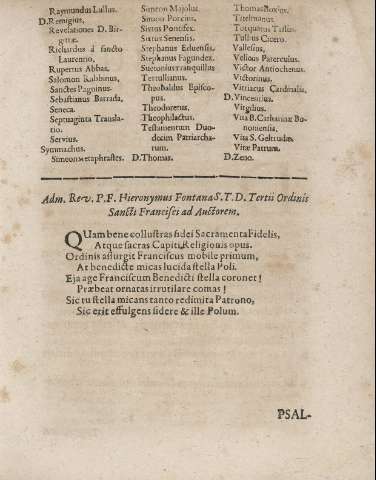 Raymundus Lullus.
D. Remigius.
Revelationes D. Bir-
gittæ.
Richardus à sancto
Laurentio.
Rupertus Abbas.
Salomon Rabbinus.
Sanctes Pagninus.
Sebastianus Barrada.
Seneca.
Septuaginta Transla-
tio.
Servius.
Symmachus.
Simeon metaphrastes.
Simeon Majolus.
Simon Porcius.
Sixtus Pontifex.
Sixtus Senensis.
Stephanus Eduensis.
Stephanus Fagundez.
Suetonius tranquillus
Tertullianus.
Theobaldus Episco-
pus.
Theodoretus.
Theophilactus.
Testamentum Duo-
decim Patriarcha-
rum.
D. Thomas.
Titelmanus.
Torquatus Tassus.
Tullius Cicero.
Vallesius,
Velleius Paterculus.
Victor Antiochenus.
Victorinus.
Vitriacus Cardinalis,
D. Vincentius.
Virgilius.
Vita B. Catharinæ Bo-
noniensis.
Vita S. Geltrudæ.
Vitæ Patrum.
D. Zeno.
Adm. Rev. P. F. Hieronymus Fontana S. T. D. Tertii Ordinis
Sancti Francisci ad Auctorem.
QUam bene collustras fidei Sacramenta Fidelis,
Atque sacras Capiti, Religionis opus.
Ordinis assurgit Franciscus mobile primum,
At benedicte micas lucida stella Poli.
Eja age Franciscum Benedicti stella coronet!
Præbeat ornatas irrutilare comas!
Sic tu stella micans tanto redimita Patrono,
Sic erit effulgens sidere & ille Polum.
PSAL-